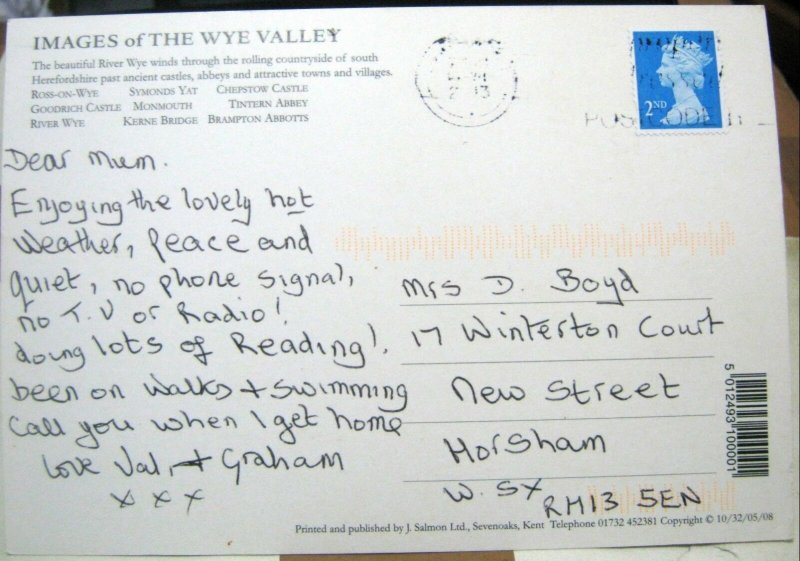 IMAGES of THE WYE VALLEY
The beautiful River Wye winds through the rolling countryside of south
Herefordshire past ancient castles, abbeys and attractive towns and villages.
ROSS-ON-WYE SYMONDS YAT CHEPSTOW CASTLE
GOODRICH CASTLE MONMOUTH TINTERN ABBEY
RIVER WYE KERNE BRIDGE BRAMPTON ABBOTTS
2ND
POSTCODE IT
Dear Mum.
Enjoying the lovely hot
Weather, Peace and
quiet, no phone signal,
no T.V or Radio!
doing lots of Reading!.
been on walks + swimming
Call you when I get home
Love Val + Graham
x x x
Mrs D. Boyd
17 Winterton Court
New Street
Horsham
W. SX RH13 5EN
5 012493 100001
Printed and published by J. Salmon Ltd., Sevenoaks, Kent Telephone 01732 452381 Copyright © 10/32/05/08